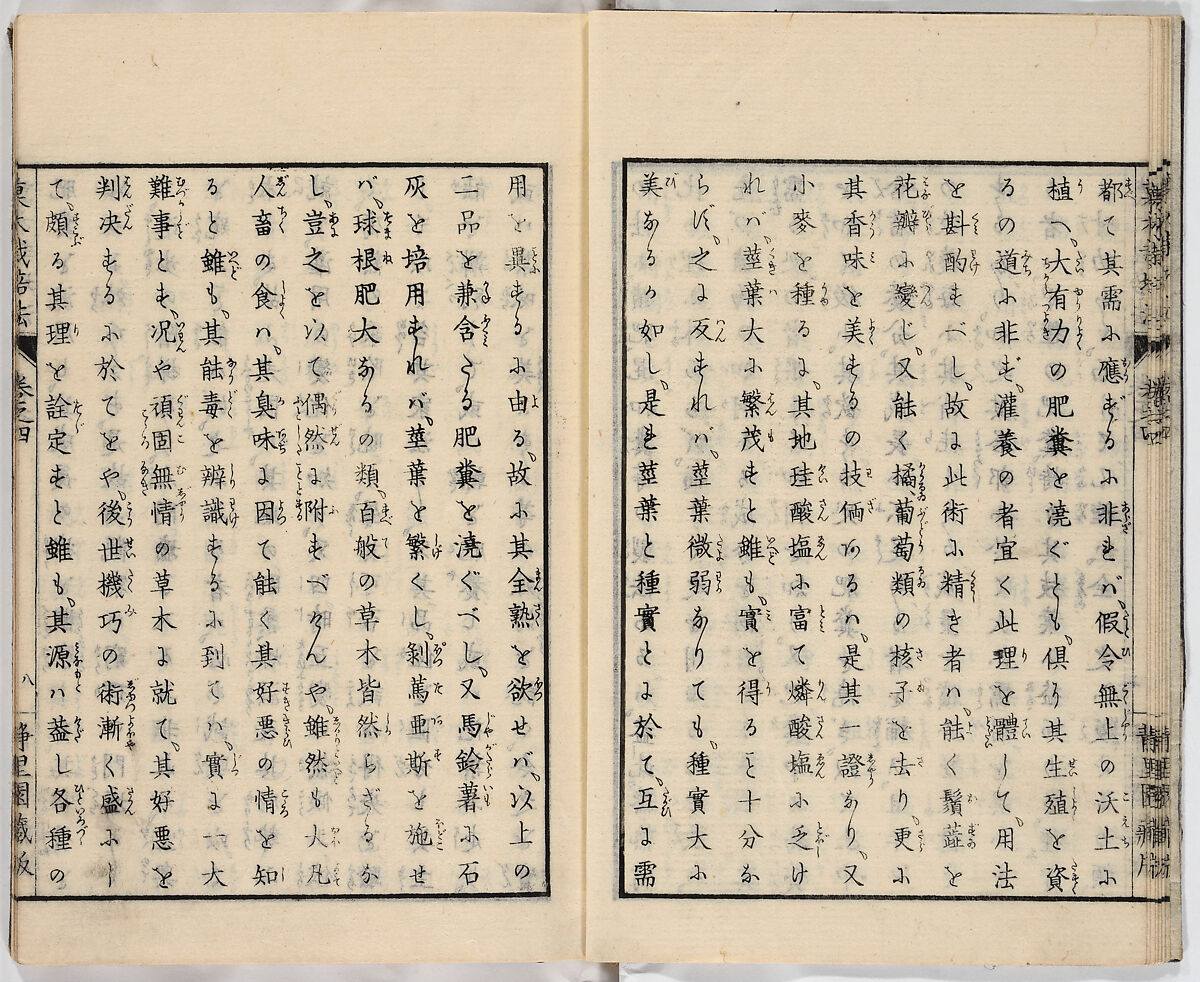 都て其需に應ずるに非れバ、假令無上の沃土に
植へ、大有力の肥糞を澆ぐとも、倶り其生殖を資
るの道に非ず、灌養の者宜く此理を體して、用法
を斟酌すべし、故に此術に精き者ハ、能く鬚蘂を
花瓣に變じ、又能く橘、葡萄類の核子を去り、更に
其香味を美するの技倆あるハ、是其一證なり、又
小麥を種るに、其地珪酸塩に富て燐酸塩に乏け
れバ、莖葉大に繁茂すと雖も、實を得ること十分な
らず、之に反すれバ、莖葉微弱なりても、種實大に
美なるが如し、是れ莖葉と種實とに於て、互に需
用を異するに由る、故に其全熟を欲せバ、以上の
二品を兼含たる肥糞を澆ぐべし、又馬鈴薯に石
灰を培用すれバ、莖葉を繁くし、剝篤亜斯を施せ
バ、球根肥大なるの類、百般の草木皆然らざるな
し、豈之を以て偶然に附すべけんや、雖然も大凡
人畜の食ハ、其臭味に因て能く其好悪の情を知
ると雖も、其能毒を辨識するに到てハ、實に一大
難事とす、况や頑固無情の草木に就て、其好悪を
判决するに於てをや、後世機巧の術漸く盛にし
て、頗る其理を詮定すと雖も、其源ハ盖し各種の
草木栽培法 卷之四 八 静里園藏版